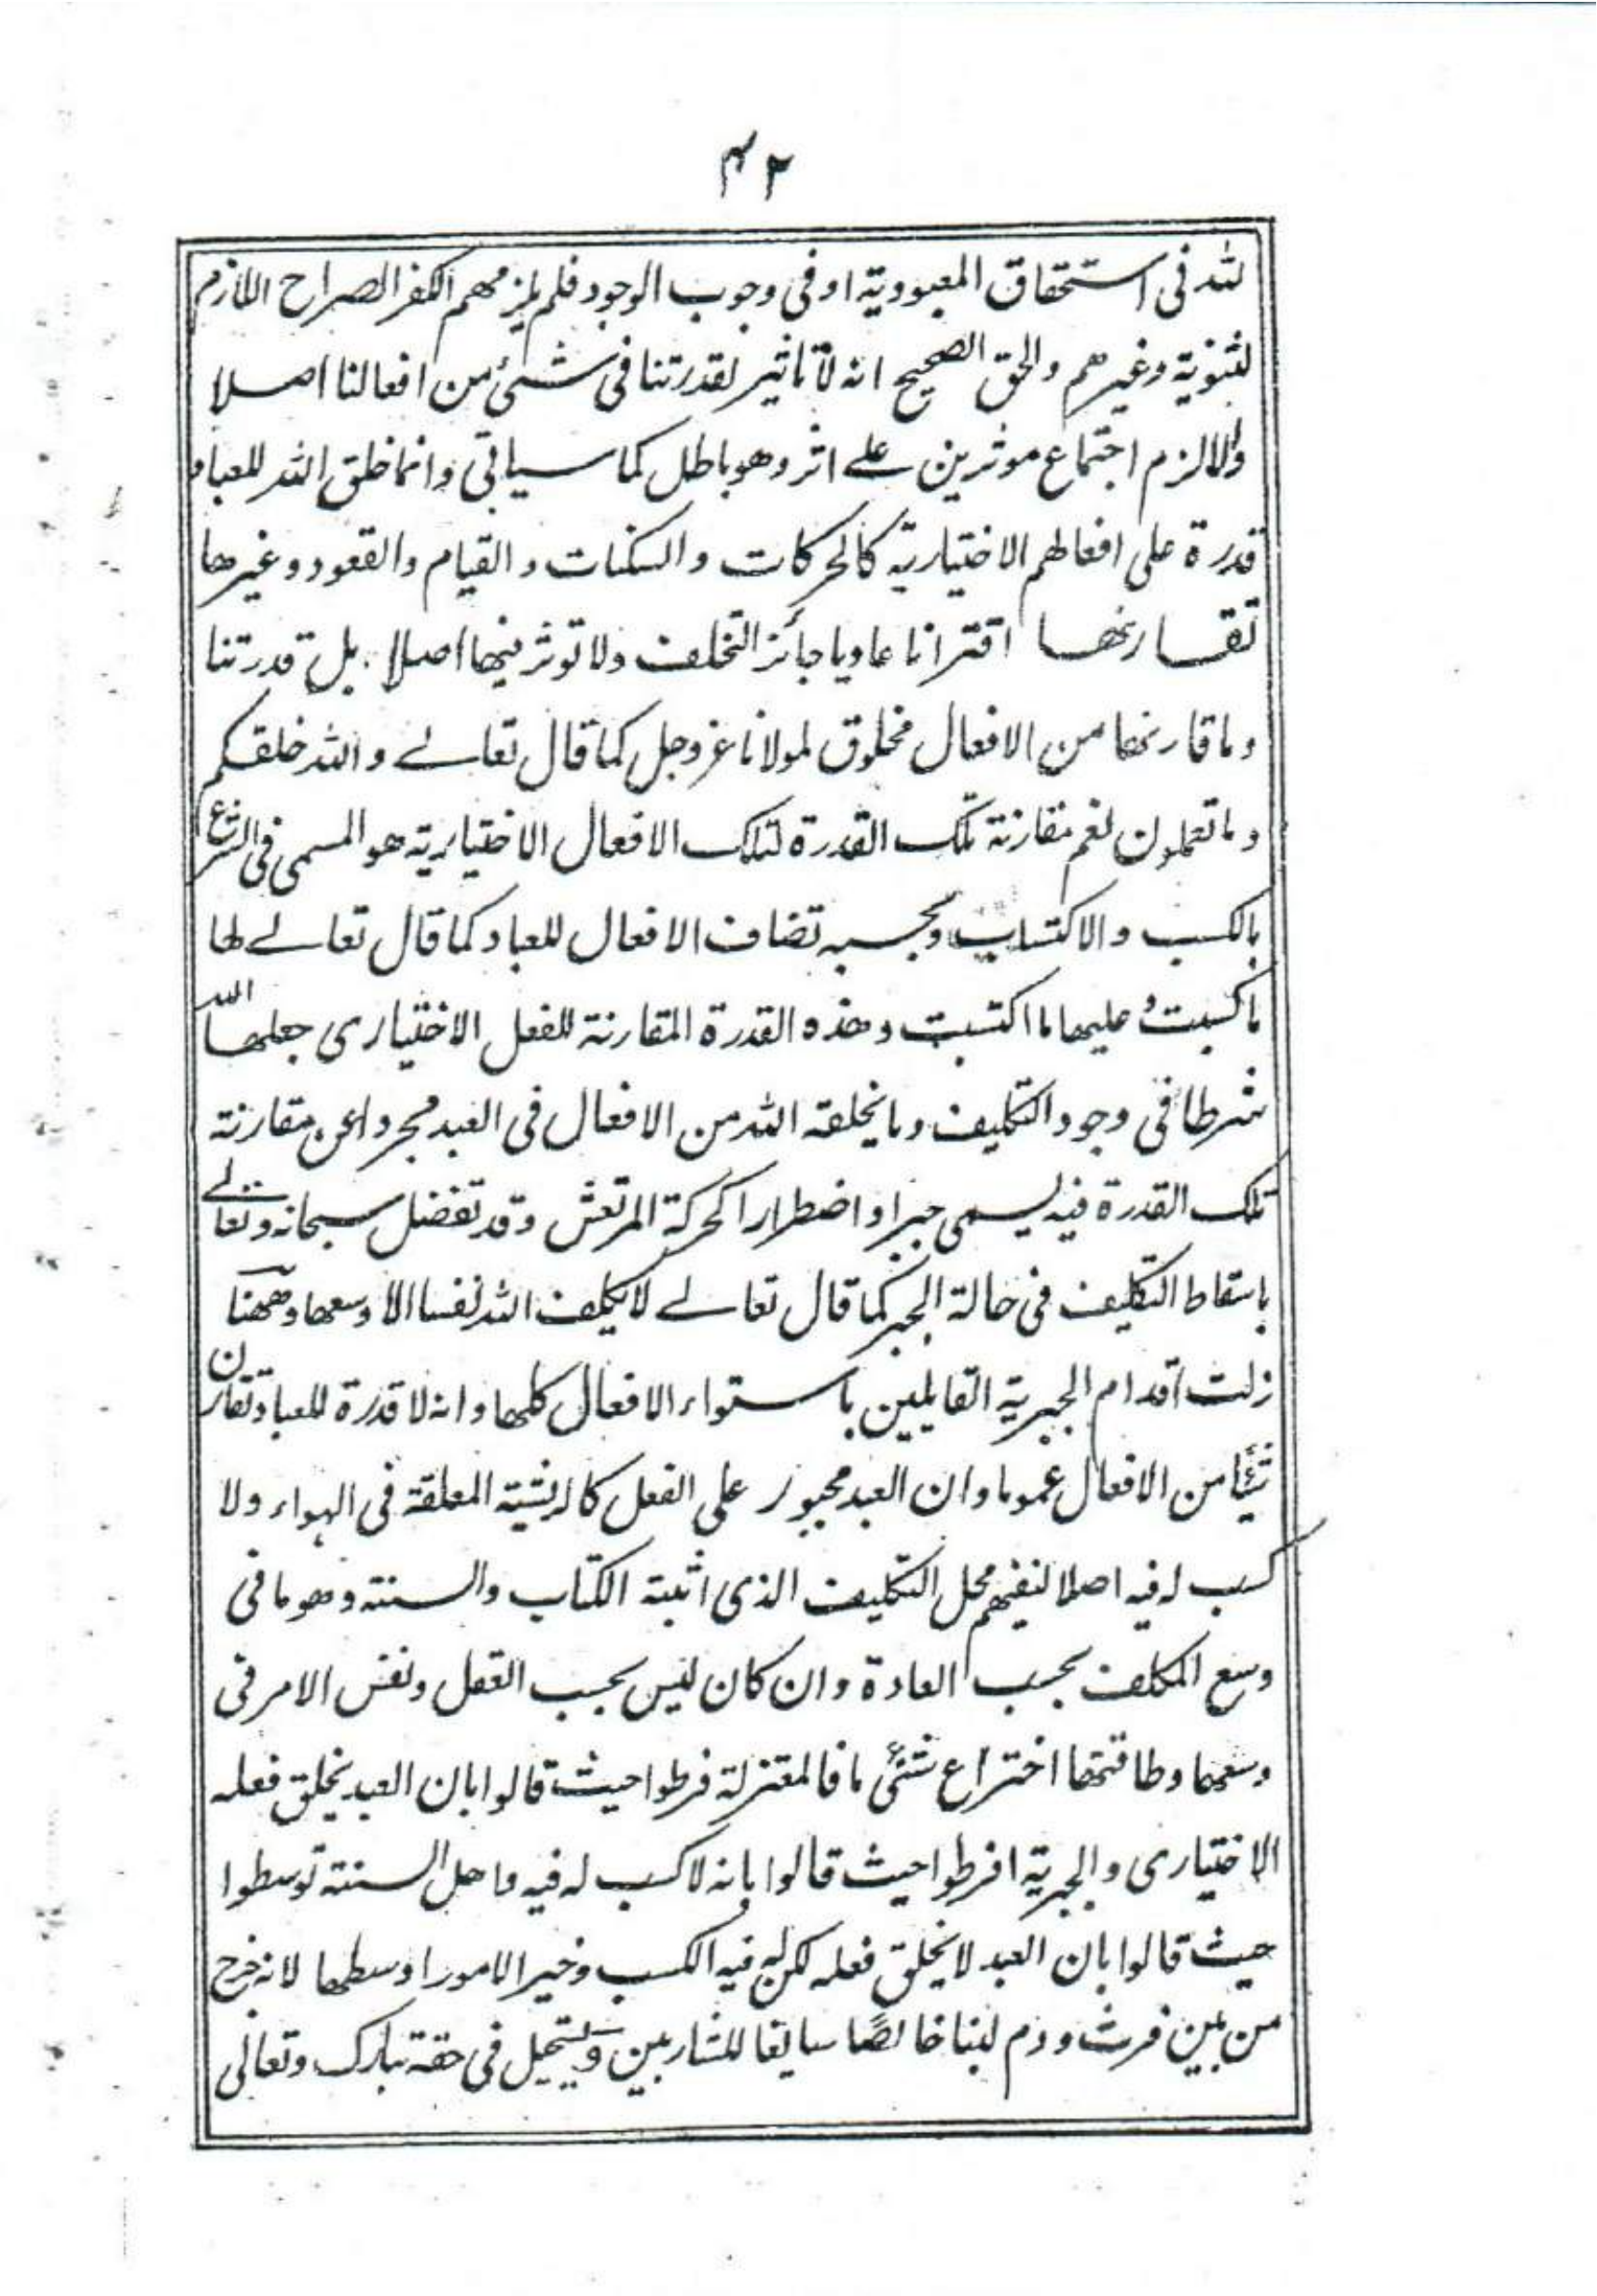 ۴۲
لله فى استحقاق المعبودية او فى وجوب الوجود فلم يلزمهم الكفر الصراح اللازم
لثنوية وغيرهم والحق الصحيح انه لا تاثير لقدرتنا فى شئ من افعالنا اصلا
والا لزم اجتماع موثرين على اثر وهو باطل كما سياتى وانما خلق الله للعباد
قدرة على افعالهم الاختيارية كالحركات والسكنات والقيام والقعود وغيرها
تقارنها اقترانا عاديا جائز التخلف ولا توثر فيها اصلا . بل قدرتنا
وما قارنها من الافعال مخلوق لمولانا عز وجل كما قال تعالے والله خلقكم
وما تعملون نعم مقارنة تلك القدرة لتلك الافعال الاختيارية هو المسمى فى الشرع
بالكسب والاكتساب وبحسبه تضاف الافعال للعباد كما قال تعالے لها
ما كسبت وعليها ما اكتسبت وهذه القدرة المقارنة للفعل الاختيارى جعلها الله
شرطا فى وجود التكليف وما يخلقه الله من الافعال فى العبد مجردا عن مقارنة
تلك القدرة فيه يسمى جبرا واضطرارا كحركة المرتعش وقد تفضل سبحانه وتعالے
باسقاط التكليف فى حالة الجبر كما قال تعالے لا يكلف الله نفسا الا وسعها وههنا
زلت اقدام الجبرية القايلين باستواء الافعال كلها وانه لا قدرة للعباد تقارن
شيئا من الافعال عموما وان العبد مجبور على الفعل كالريشة المعلقة فى الهواء ولا
كسب له فيه اصلا لنفيهم محل التكليف الذى اثبته الكتاب والسنة وهو ما فى
وسع المكلف بحسب العادة وان كان ليس بحسب العقل ونفس الامر فى
وسعها وطاقتها اختراع شئ ما فالمعتزلة فرطوا حيث قالوا بان العبد يخلق فعله
الاختيارى والجبرية افرطوا حيث قالوا بانه لا كسب له فيه واهل السنة توسطوا
حيث قالوا بان العبد لا يخلق فعله لكن له فيه الكسب وخير الامور اوسطها لانه خرج
من بين فرث ودم لبنا خالصًا سايغا للشاربين ويستحيل فى حقه تبارك وتعالى